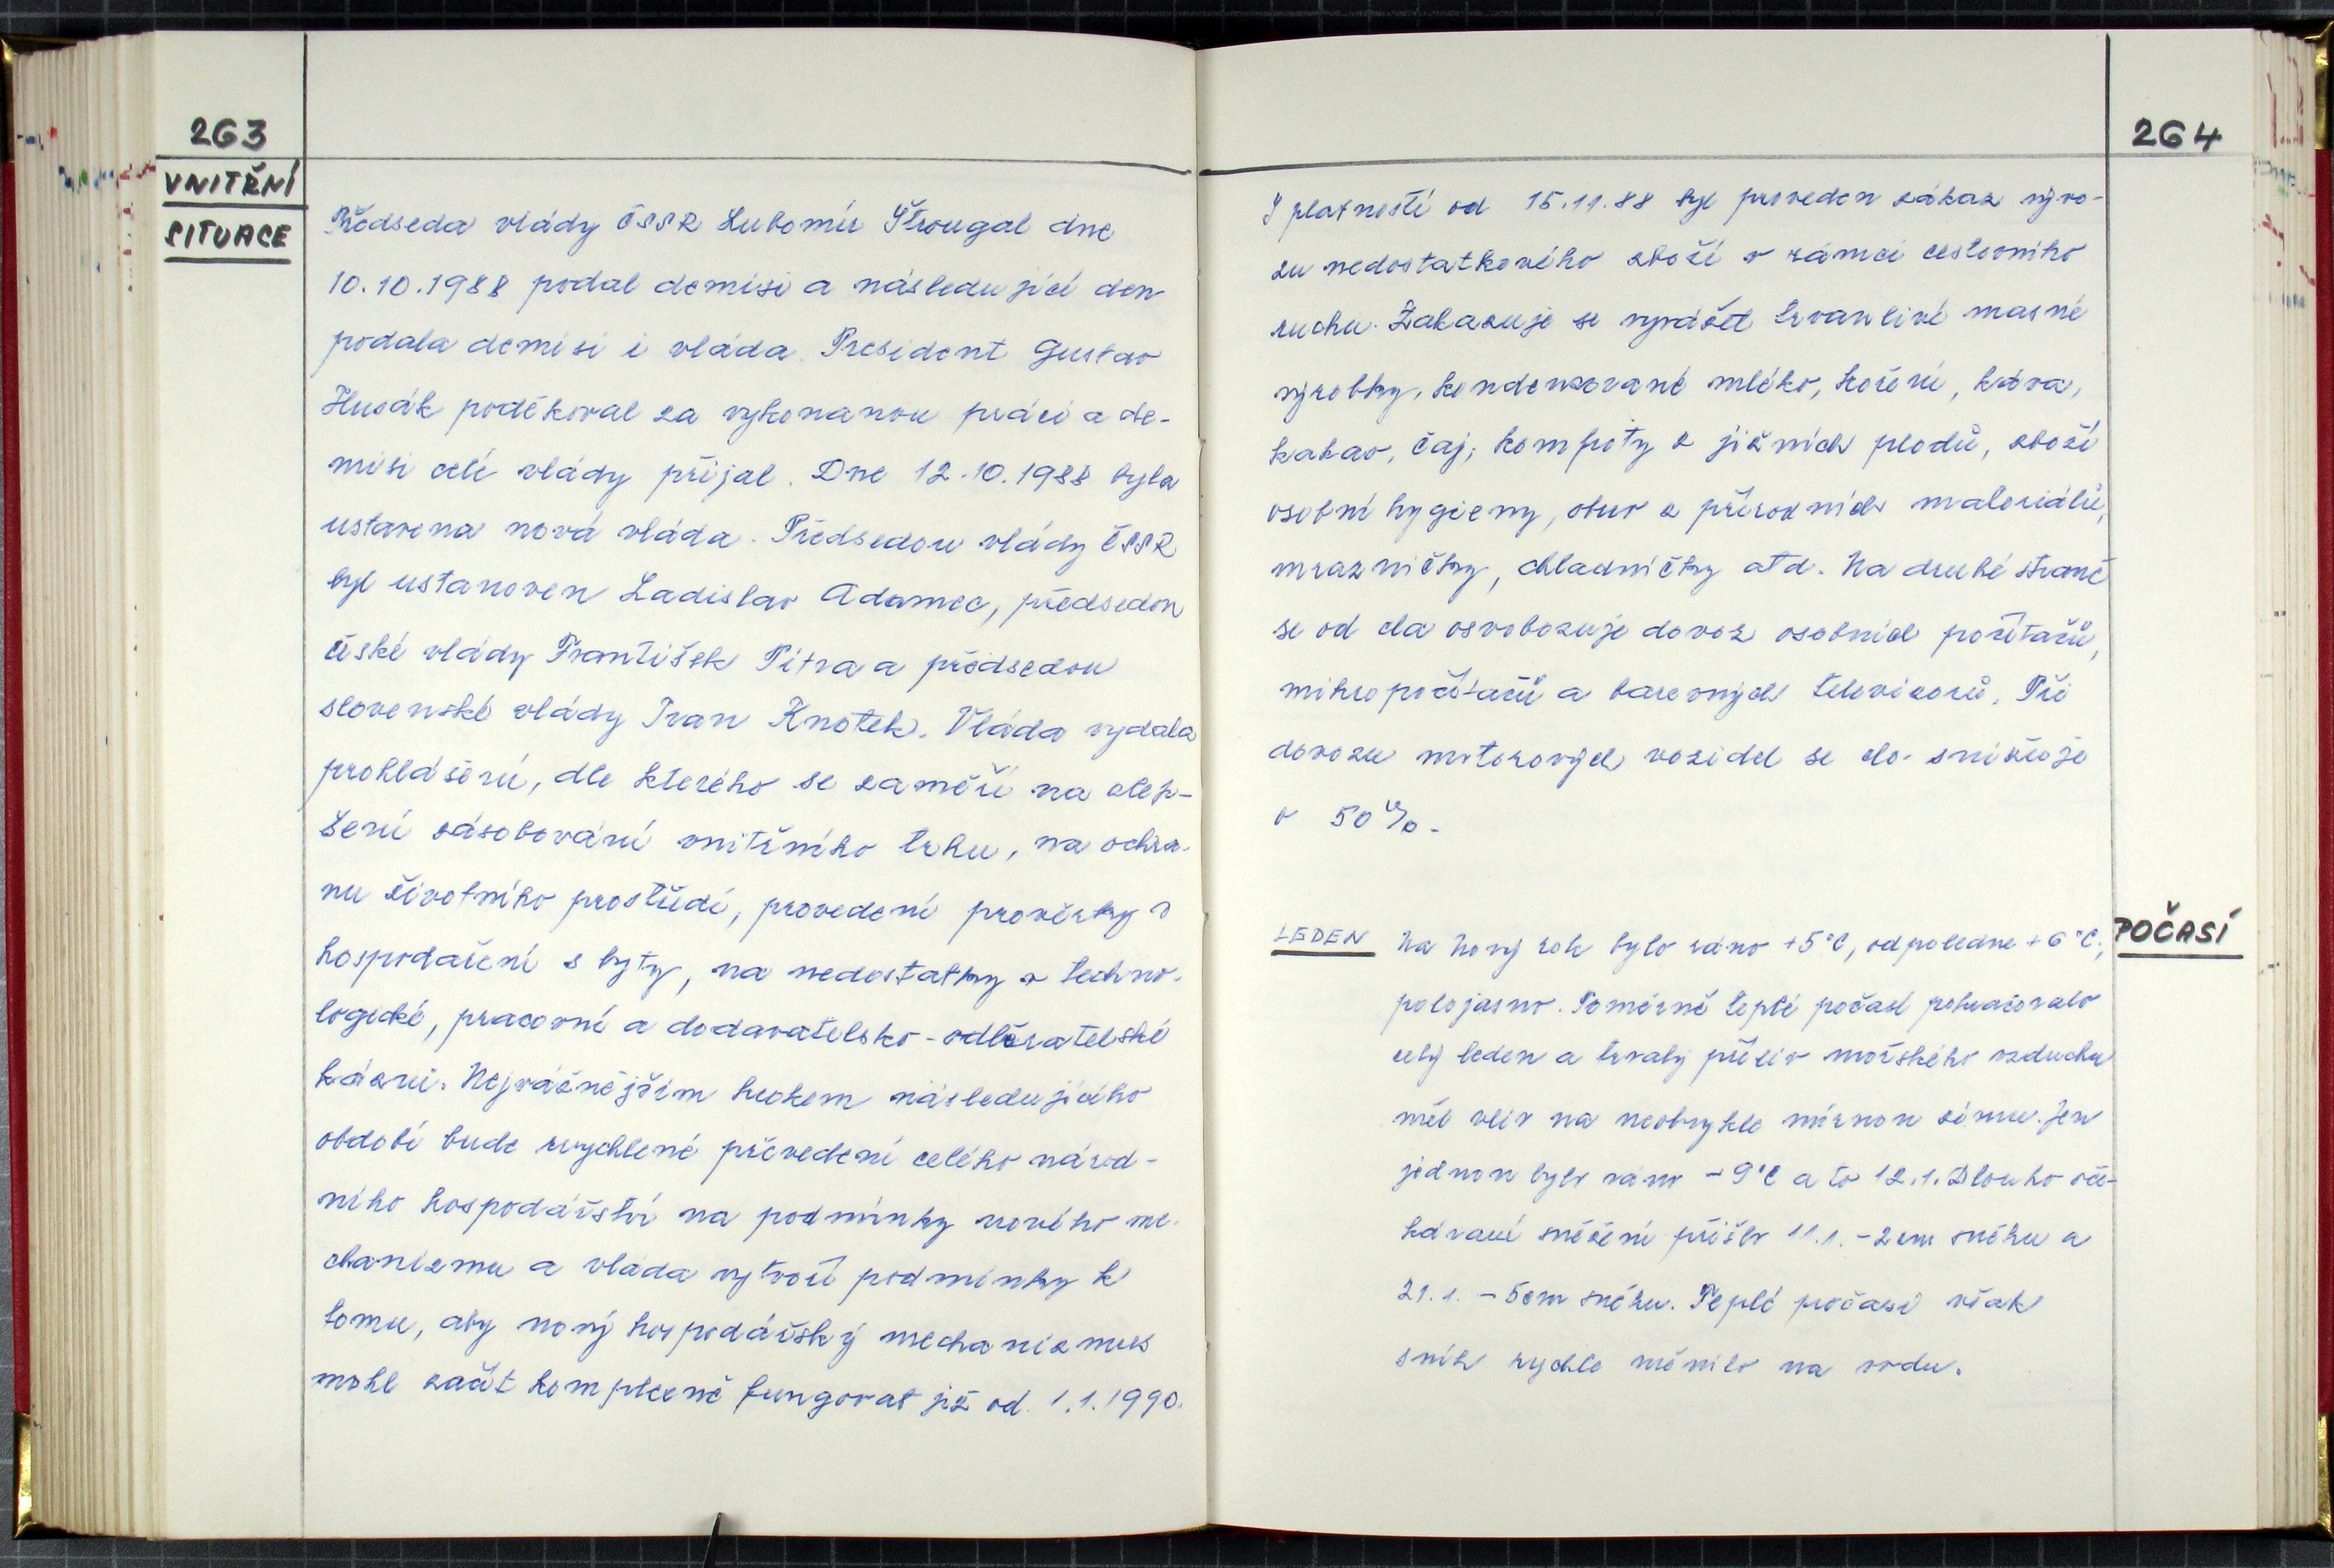 263
VNITŘNÍ
SITUACE
Předseda vlády ČSSR Lubomír Štrougal dne
10.10.1988 podal demisi a následující den
podala demisi i vláda. President Gustav
Husák poděkoval za vykonanou práci a de-
misi celé vlády přijal. Dne 12.10.1988 byla
ustavena nová vláda. Předsedou vlády ČSSR
byl ustanoven Ladislav Adamec, předsedou
české vlády František Pitra a předsedou
slovenské vlády Ivan Knotek. Vláda vydala
prohlášení, dle kterého se zaměří na zlep-
šení zásobování vnitřního trhu, na ochra-
nu životního prostředí, provedení prověrky v
hospodaření s byty, na nedostatky v techno-
logické, pracovní a dodavatelsko-odběratelské
kázni. Nejvážnějším krokem následujícího
období bude urychlené převedení celého národ-
ního hospodářství na podmínky nového me-
chanizmu a vláda vytvoří podmínky k
tomu, aby nový hospodářský mechanizmus
mohl začít komplexně fungovat již od 1.1.1990.
264
S platností od 15.11.88 byl proveden zákaz vývo-
zu nedostatkového zboží v rámci cestovního
ruchu. Zakazuje se vyvážet trvanlivé masné
výrobky, kondenzované mléko, koření, káva,
kakao, čaj, kompoty z jižních plodů, zboží
osobní hygieny, obuv z přírodních materiálů,
mrazničky, chladničky atd. Na druhé straně
se od cla osvobozuje dovoz osobních počítačů,
mikropočítačů a barevných televizorů. Při
dovozu motorových vozidel se clo snižuje
o 50%.
POČASÍ
LEDEN Na Nový rok bylo ráno +5°C, odpoledne +6°C,
polojasno. Poměrně teplé počasí pokračovalo
celý leden a trvalý příliv mořského vzduchu
měl vliv na neobvykle mírnou zimu. Jen
jednou bylo ráno -9°C a to 12.1. Dlouho oče-
kávané sněžení přišlo 11.1. - 2cm sněhu a
21.1. - 5cm sněhu. Teplé počasí však
sníh rychle měnilo na vodu.